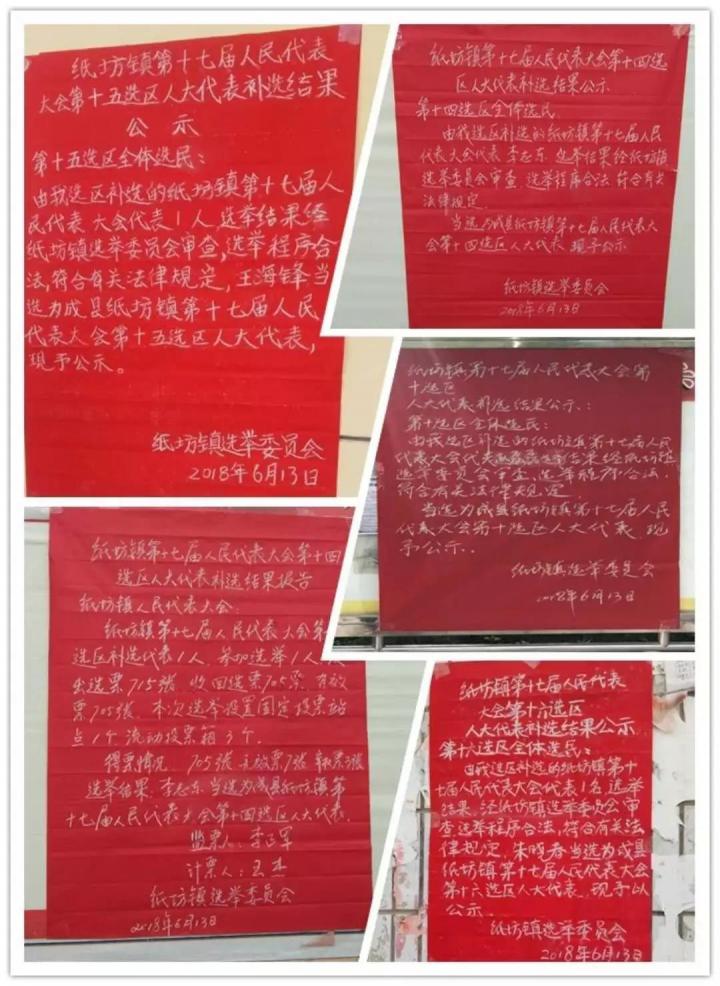 纸坊镇第十七届人民代表
大会第十五选区人大代表补选结果
公示
第十五选区全体选民：
由我选区补选的纸坊镇第十七届人
民代表大会代表1人,选举结果经
纸坊镇选举委员会审查,选举程序合
法,符合有关法律规定,王海锋当
选为成县纸坊镇第十七届人民
代表大会第十五选区人大代表,
现予公示。
纸坊镇选举委员会
2018年6月13日
纸坊镇第十七届人民代表大会第十四选
区人大代表补选结果公示
第十四选区全体选民
由我选区补选的纸坊镇第十七届人民
代表大会代表李志东,选举结果经纸坊镇
选举委员会审查,选举程序合法,符合有关
法律规定
当选为成县纸坊镇第十七届人民代表大
会第十四选区人大代表,现予公示
纸坊镇选举委员会
2018年6月13日
纸坊镇第十七届人民代表大会第
十选区
人大代表补选结果公示:
第十选区全体选民:
由我选区补选的纸坊镇第十七届人民
代表大会代表 结果经纸坊镇
选举委员会审查,选举程序合法,
符合有关法律规定
当选为成县纸坊镇第十七届人民
代表大会第十选区人大代表,现
予公示.
纸坊镇选举委员会
2018年6月13日
纸坊镇第十七届人民代表大会第十四
选区人大代表补选结果报告
纸坊镇人民代表大会:
纸坊镇第十七届人民代表大会第
选区补选代表1人,参加选举1人
出选票715张,收回选票705票,有效
票705张,本次选举设置固定投票站
点1个,流动投票箱3个.
得票情况 705张 无效票7张 弃票3张
选举结果,李志东当选为成县纸坊镇第
十七届人民代表大会第十四选区人大代表.
监票人:李 军
计票人:王
纸坊镇选举委员会
2018年6月13日
纸坊镇第十七届人民代表
大会第十六选区
人大代表补选结果公示
第十六选区全体选民:
由我选区补选的纸坊镇第十
七届人民代表大会代表1名,选举
结果,经纸坊镇选举委员会审
查选举程序合法,符合有关法
律规定,朱晓春当选为成县
纸坊镇第十七届人民代表大会
第十六选区人大代表,现予以
公示.
纸坊镇选举委员会
2018年6月13日